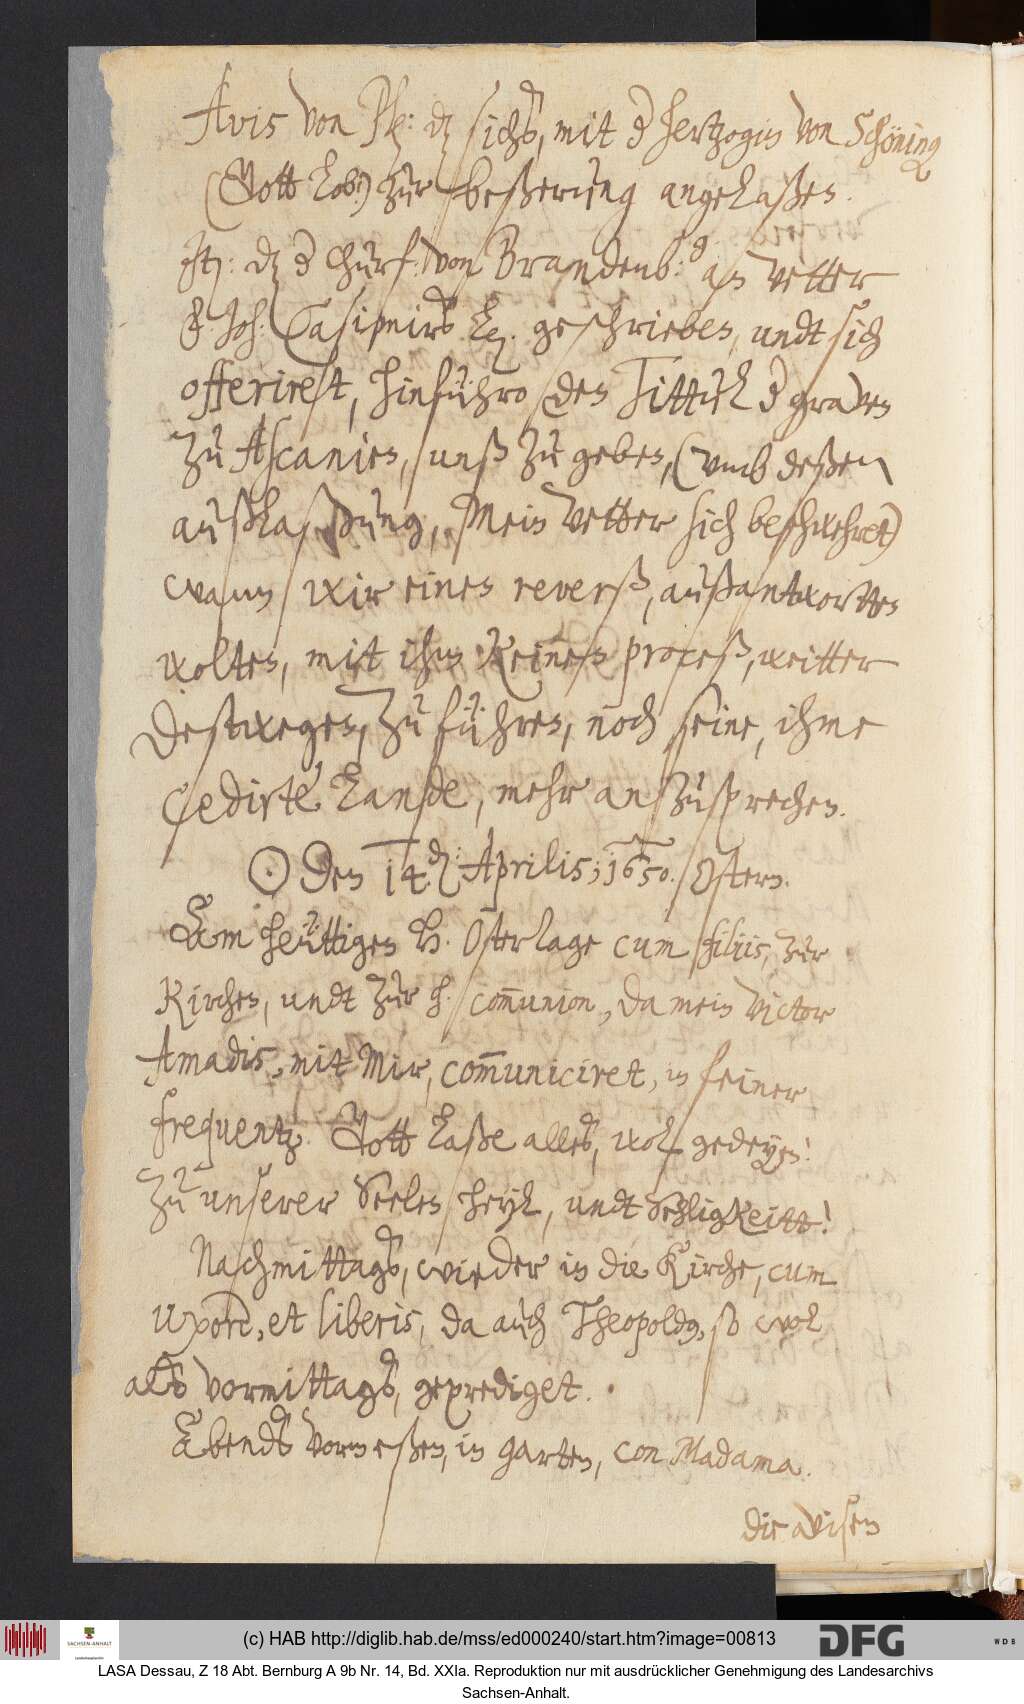 Avis von Pl: dz sichs, mit der hertzogin von Schöning
(Gott lob:) zur beßerung angelaßen.
It: dz der Churf: von Brandenb: an Vetter
F. Joh: Casimirs L. geschrieben, undt sich
offerirett, hinführo den Tittul der graven
zu Ascanien, unß zu geben, (umb deßen
außlaßung, Mein Vetter sich beschwehret)
wann wir einen reverß, außantwortten
wolten, mit ihm keinen proceß, weitter
destwegen, zu führen, noch seine, ihme
cedirte Lande, mehr anzusprechen.
☉ Den 14. Aprilis; 1650. Ostern.
Am heüttigen H. Ostertage cum filiis, zur
Kirchen, undt zur h. com̄union, da mein Victor
Amadis, mit Mir, com̄uniciret, in feiner
frequentz. Gott laße alles, wol gedeyen!
zu unserer Seelen heyl, undt Sehligkeitt!
Nachmittags, wieder in die Kirche, cum
uxore, et liberis, da auch Theopoldus, so wol
alß vormittags, geprediget.
Abends vorm eßen, in garten, con Madama.
die avisen
(c) HAB http://diglib.hab.de/mss/ed000240/start.htm?image=00813
SACHSEN-ANHALT
DFG
WDB
LASA Dessau, Z 18 Abt. Bernburg A 9b Nr. 14, Bd. XXIa. Reproduktion nur mit ausdrücklicher Genehmigung des Landesarchivs
Sachsen-Anhalt.